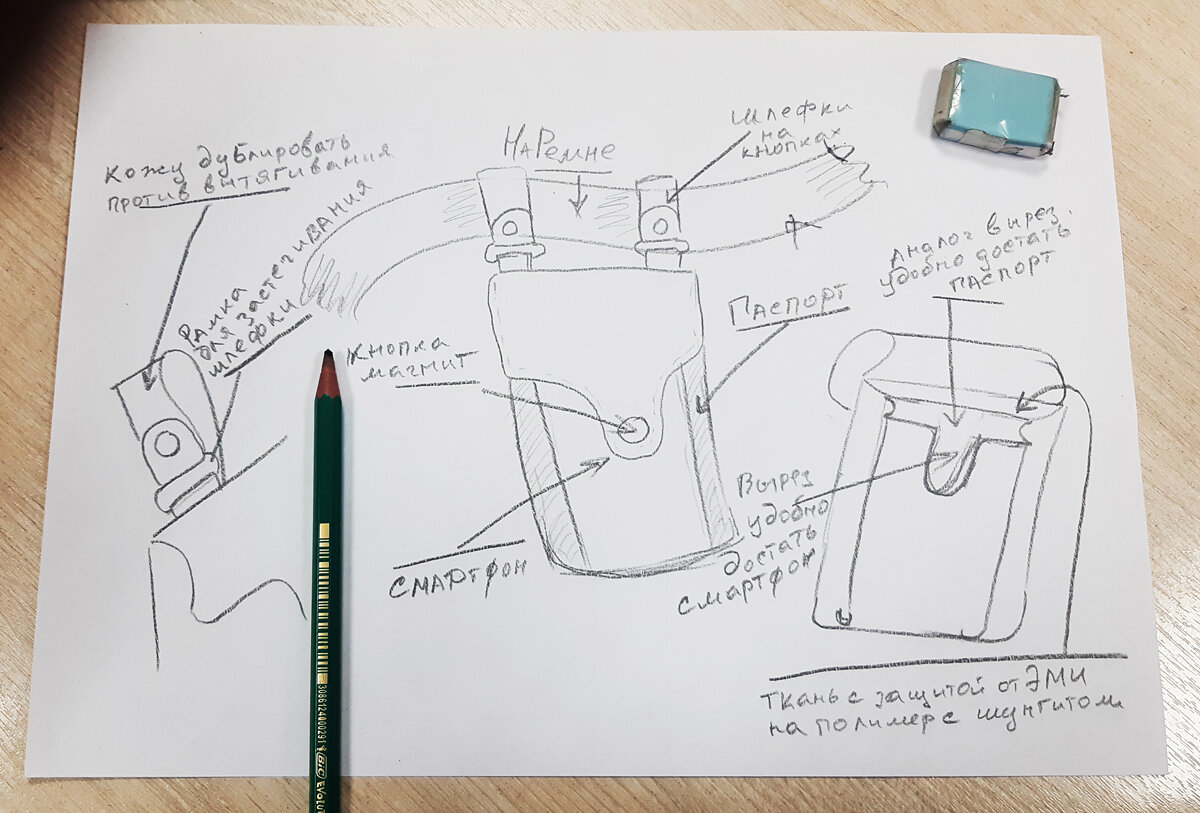 Кожу дублировать
против вытягивания
Рамка
для застегивания
шлефки
На Ремне
шлефки
на
кнопках
Аналог вырез.
удобно достать
паспорт
Паспорт
Кнопка
магнит
Смартфон
Вырез
удобно
достать
смартфон
Ткань с защитой от ЭМИ
на полимер с шунгитом
3086124000291
BIC EVOLUT